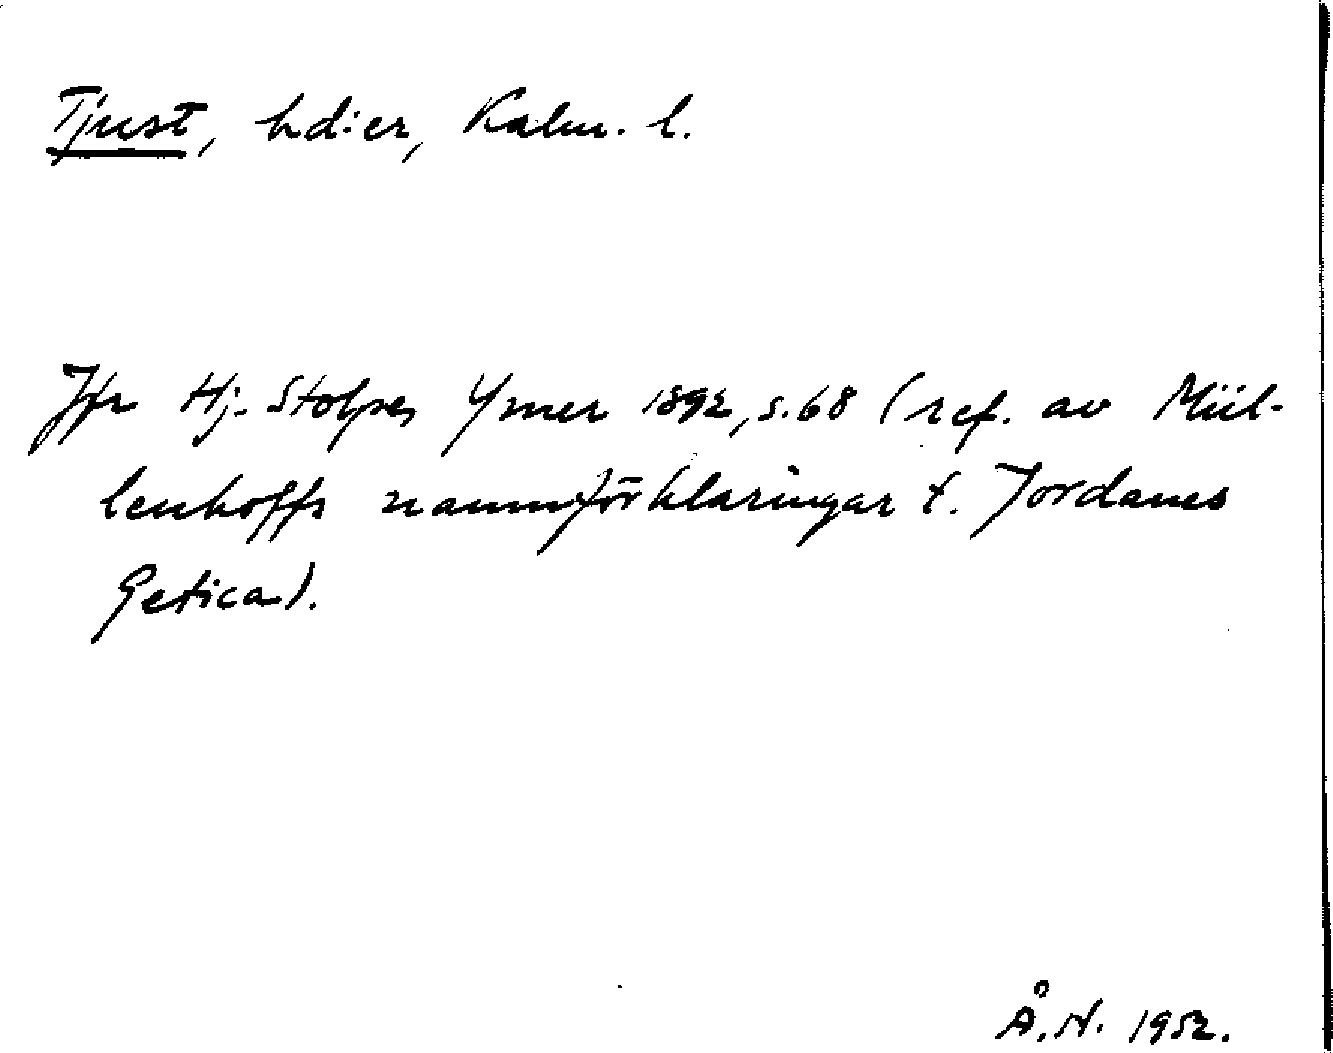 Tjust, hd:er, Kalm. l.
Jfr Hj. Stolpe, Ymer 1892, s. 68 (ref. av Mül-
lenhoffs namnförklaringar t. Jordanes
Getica).
Å. N. 1952.